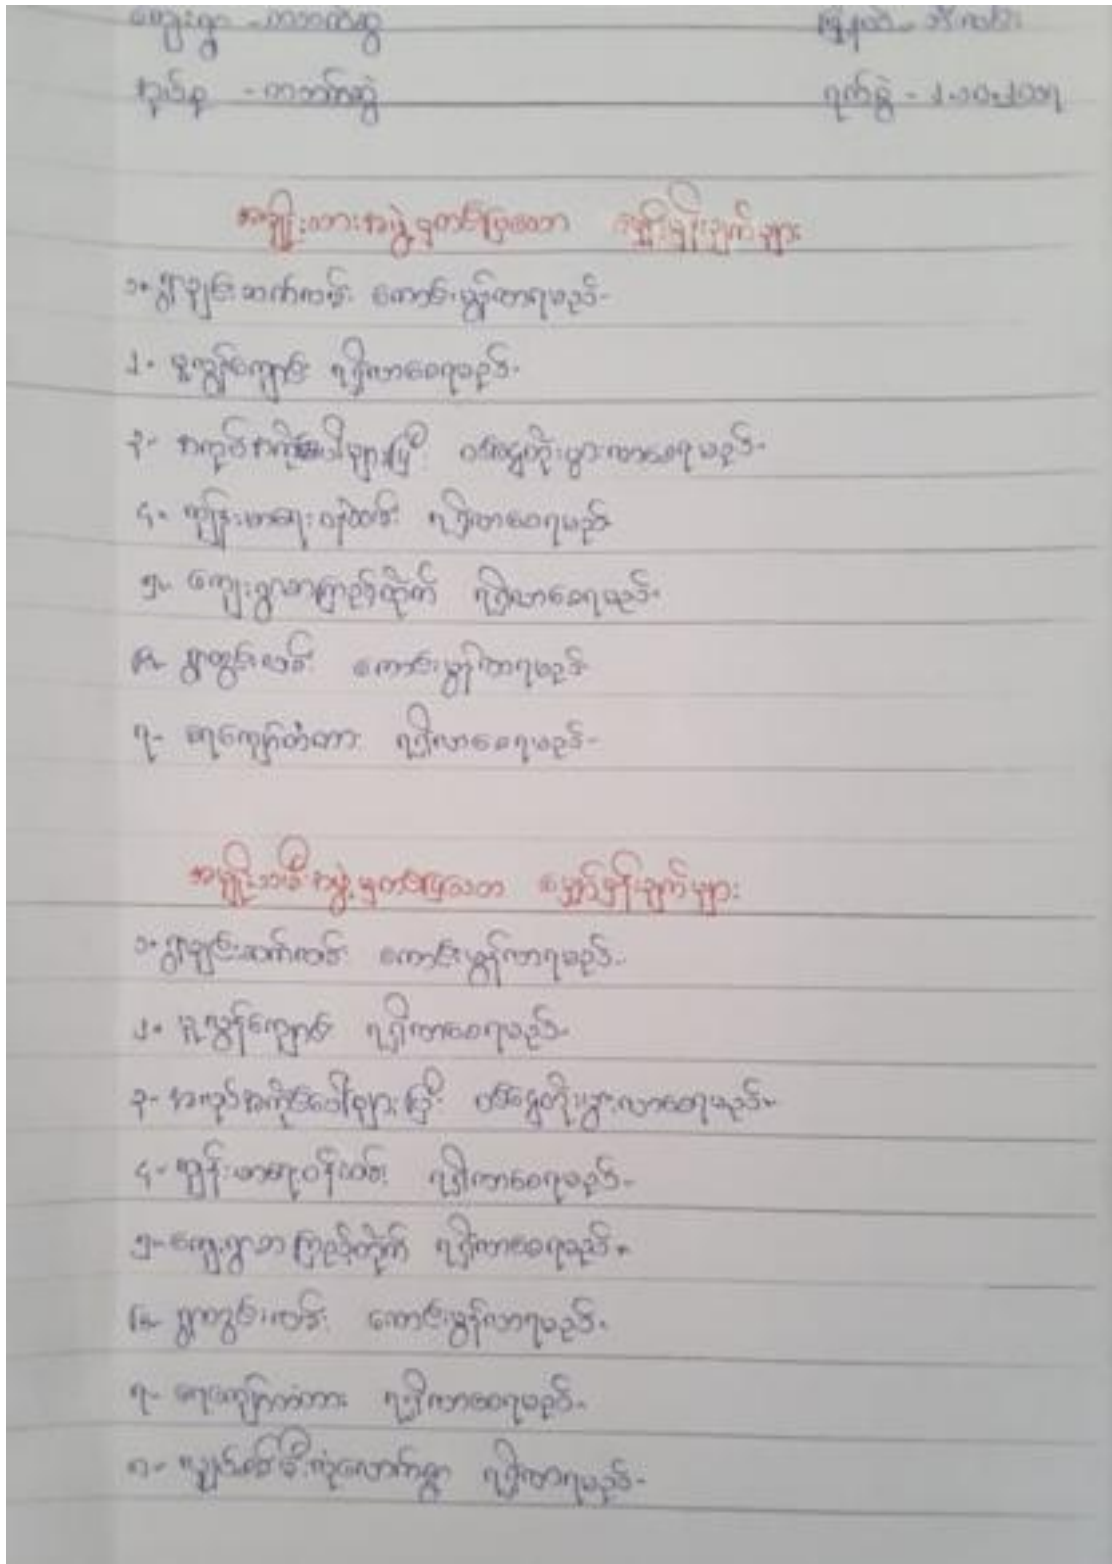 ကျေးရွာ - ကဘက်ဆွဲ မြို့နယ် - ဘီးလင်း
အုပ်စု - ကဘက်ဆွဲ ရက်စွဲ - ၂.၁၀.၂၀၁၇
အမျိုးသားအဖွဲ့မှတင်ပြသော မျှော်မှန်းချက်များ
၁။ ရွာချင်းဆက်လမ်း ကောင်းမွန်လာရမည်။
၂။ မူလွန်ကျောင်း ရရှိလာစေရမည်။
၃။ အလုပ်အကိုင်ပေါများပြီး ဝင်ငွေတိုးပွားလာစေရမည်။
၄။ ကျန်းမာရေးဝန်ထမ်း ရရှိလာစေရမည်
၅။ ကျေးရွာစာကြည့်တိုက် ရရှိလာစေရမည်။
၆။ ရွာတွင်းလမ်း ကောင်းမွန်လာရမည်
၇။ ရေကျော်တံတား ရရှိလာစေရမည်။
အမျိုးသမီးအဖွဲ့မှတင်ပြသော မျှော်မှန်းချက်များ
၁။ ရွာချင်းဆက်လမ်း ကောင်းမွန်လာရမည်။
၂။ မူလွန်ကျောင်း ရရှိလာစေရမည်။
၃။ အလုပ်အကိုင်ပေါများပြီး ဝင်ငွေတိုးပွားလာစေရမည်။
၄။ ကျန်းမာရေးဝန်ထမ်း ရရှိလာစေရမည်။
၅။ ကျေးရွာစာကြည့်တိုက် ရရှိလာစေရမည်။
၆။ ရွာတွင်းလမ်း ကောင်းမွန်လာရမည်။
၇။ ရေကျော်တံတား ရရှိလာစေရမည်။
၈။ လျှပ်စစ်မီးလုံလောက်စွာ ရရှိလာရမည်။